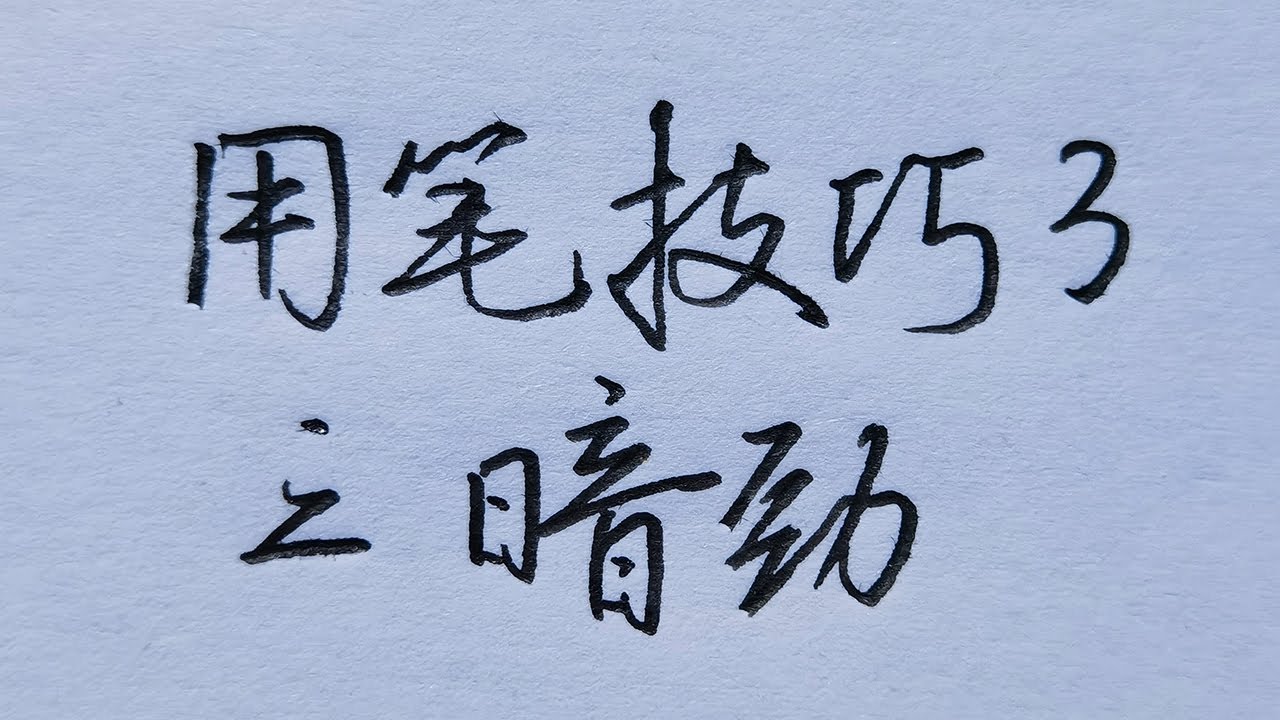 用笔技巧3
之暗劲